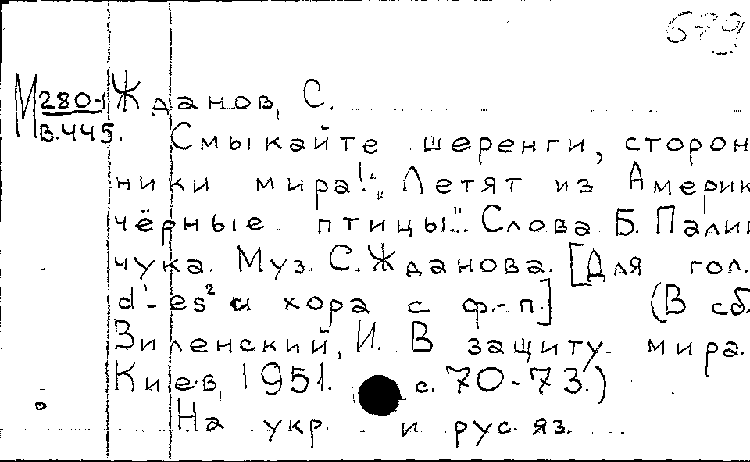 679
М 280-1 Жданов, С.
В.445. Смыкайте шеренги, сторон-
ники мира! „Летят из Америк
чёрные птицы..." Слова Б. Палий
чука. Муз. С. Жданова. [Для гол.
d¹-es² и хора с ф.-п.] (В сб.
Зиленский, И. В защиту мира.
Киев, 1951. с. 70-73.)
На укр. и рус. яз.